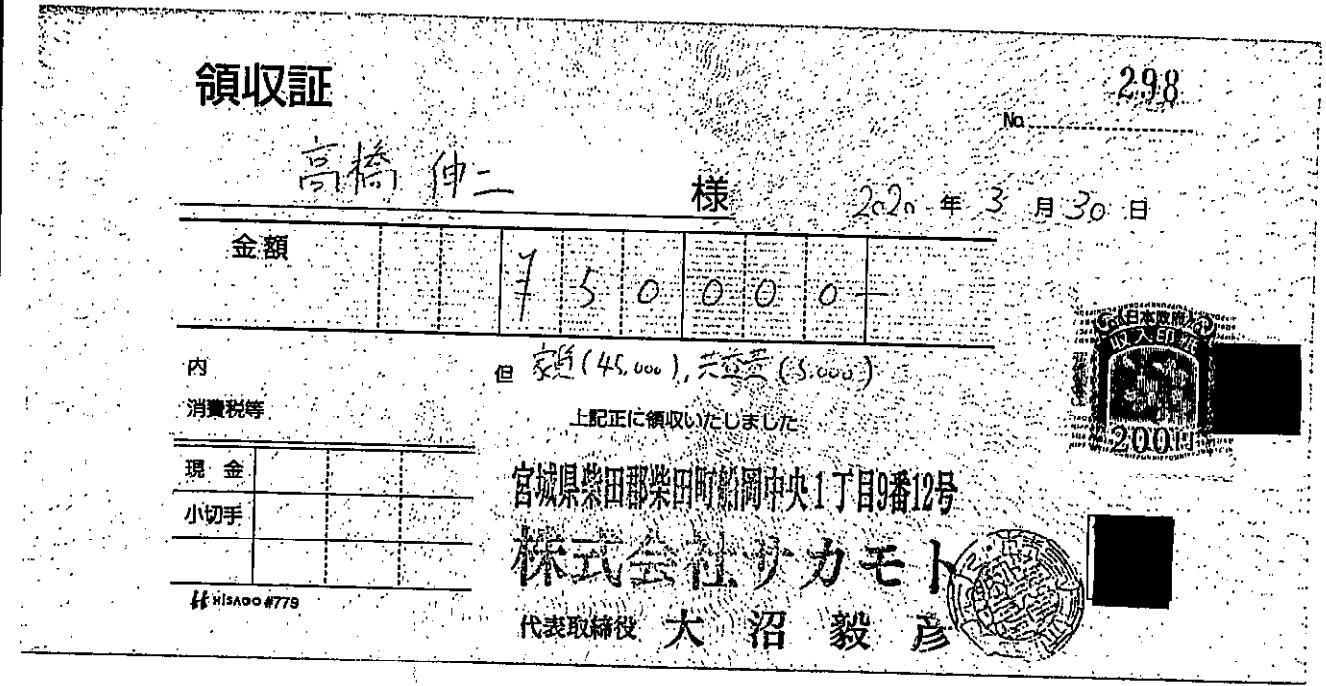 領収証
298
No.
高橋 伸二 様
2020 年 3 月 30 日
金額 ¥50000-
内
消費税等
但 家賃(45,000), 共益費(5,000)
上記正に領収いたしました
日本政府
収入印紙
200円
現金
小切手
宮城県柴田郡柴田町船岡中央1丁目9番12号
株式会社サカモト
代表取締役 大沼毅彦
HISAGO #779